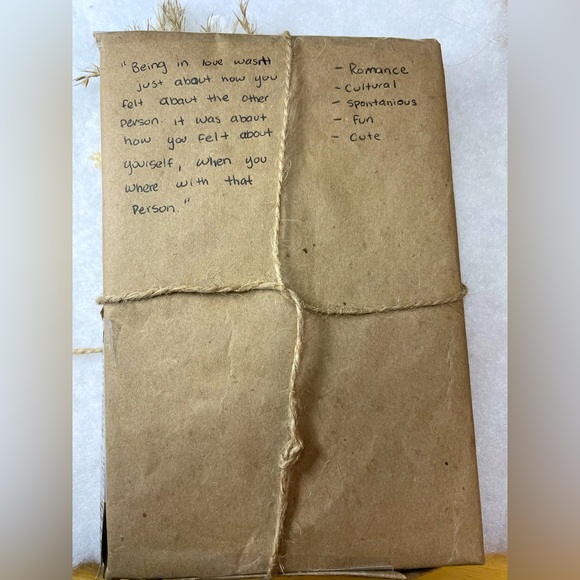 "Being in love wasn't
just about how you
felt about the other
person. it was about
how you felt about
yourself, when you
where with that
Person."
- Romance
- Cultural
- Spontanious
- Fun
- Cute